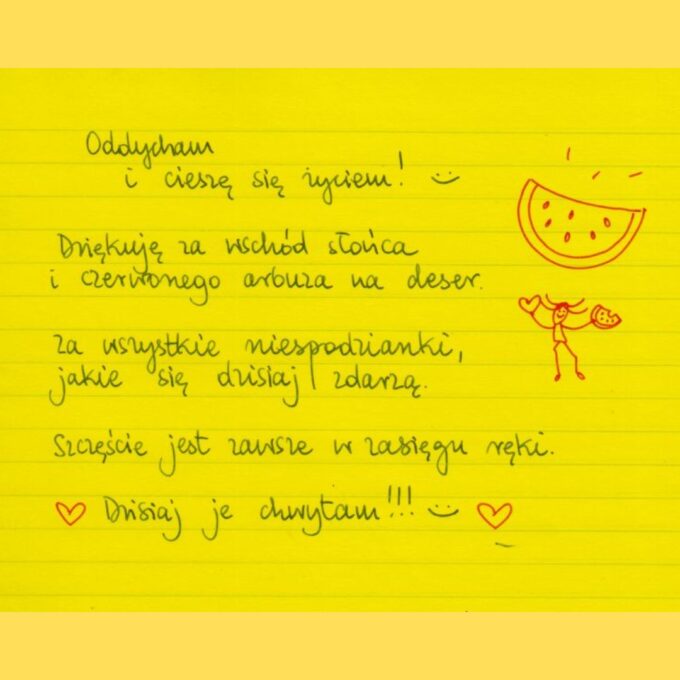 Oddycham
i cieszę się życiem! :)
Dziękuję za wschód słońca
i czerwonego arbuza na deser.
za wszystkie niespodzianki,
jakie się dzisiaj zdarzą.
Szczęście jest zawsze w zasięgu ręki.
♡ Dzisiaj je chwytam!!! :) ♡